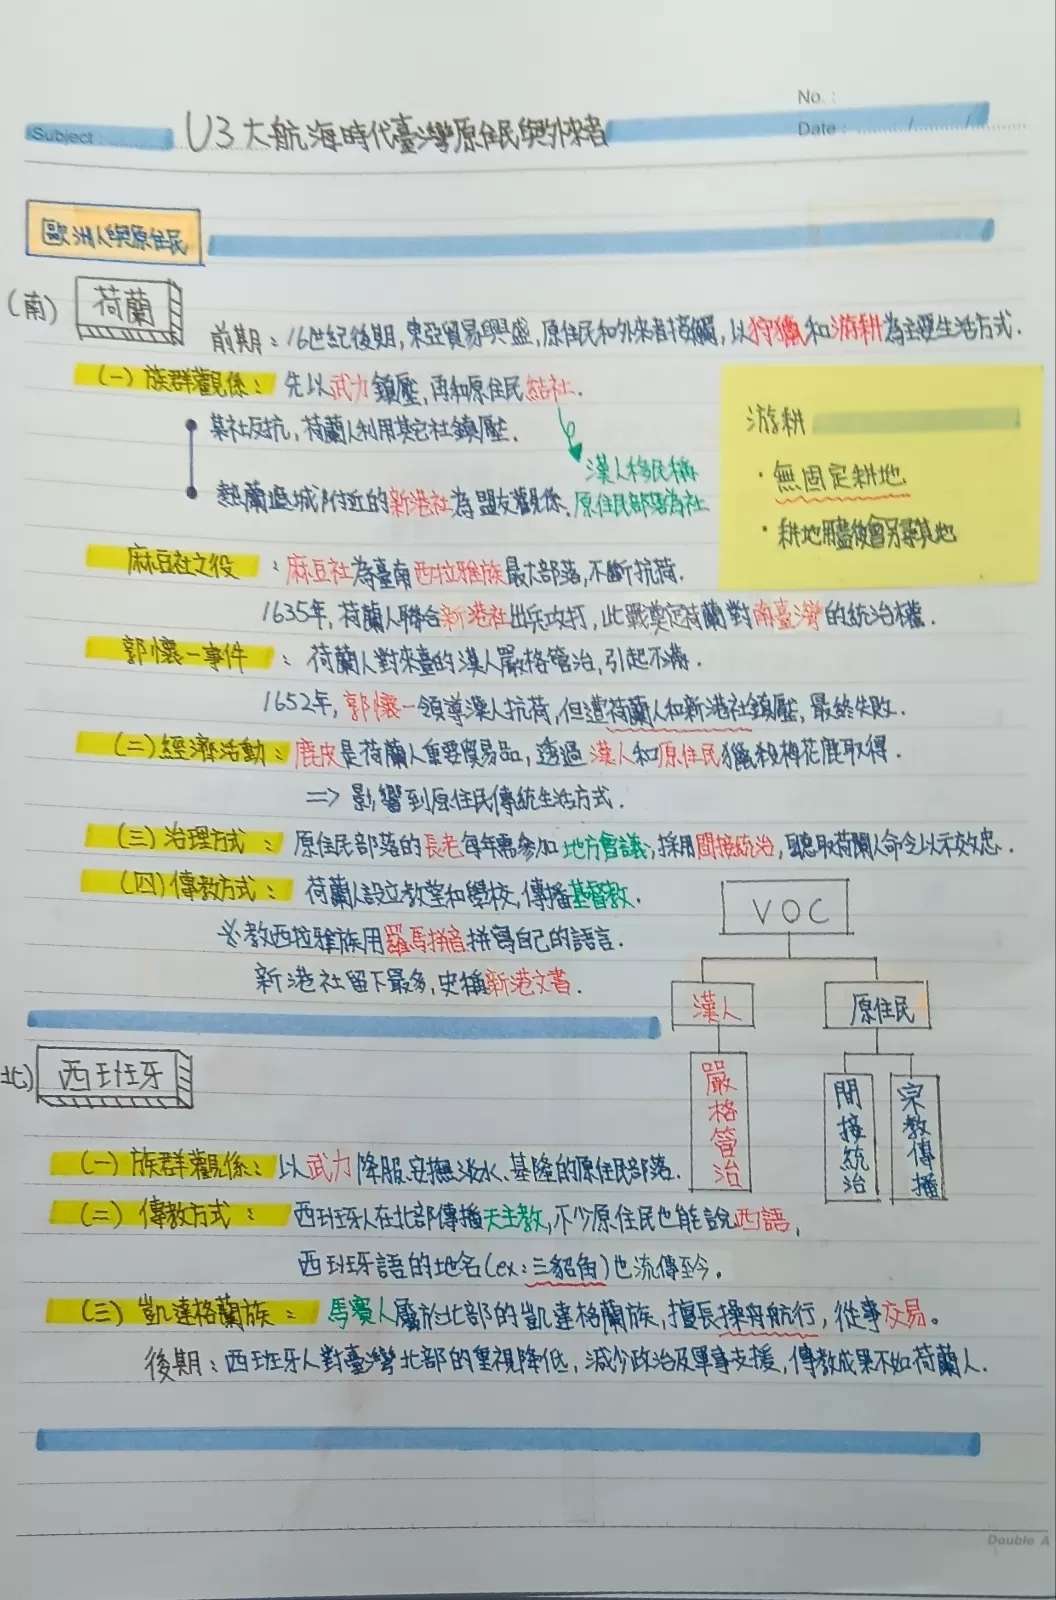 No. :
Subject : U3 大航海時代臺灣原住民與外來者 Date : / /
歐洲人與原住民
(南) 荷蘭
前期：16世紀後期，東亞貿易興盛，原住民和外來者接觸，以狩獵和游耕為主要生活方式．
(一) 族群觀係： 先以武力鎮壓，再和原住民結社．
某社反抗，荷蘭人利用其它社鎮壓．
漢人移民稱
原住民部落為社
熱蘭遮城附近的新港社為盟友觀係．
游耕
・無固定耕地
・耕地用盡後會另尋其地
麻豆社之役 ： 麻豆社為臺南西拉雅族最大部落，不斷抗荷．
1635年，荷蘭人聯合新港社出兵攻打，此戰奠定荷蘭對南臺灣的統治權．
郭懷一事件 ： 荷蘭人對來臺的漢人嚴格管治，引起不滿．
1652年，郭懷一領導漢人抗荷，但遭荷蘭人和新港社鎮壓，最終失敗．
(二) 經濟活動： 鹿皮是荷蘭人重要貿易品，透過漢人和原住民獵殺梅花鹿取得．
=> 影響到原住民傳統生活方式．
(三) 治理方式： 原住民部落的長老每年需參加地方會議，採用間接統治，聽取荷蘭人命令以示效忠．
(四) 傳教方式： 荷蘭人設立教堂和學校，傳播基督教．
※教西拉雅族用羅馬拼音拼寫自己的語言．
新港社留下最多，史稱新港文書．
VOC
漢人
原住民
嚴格管治
間接統治
宗教傳播
北) 西班牙
(一) 族群觀係： 以武力降服、安撫淡水、基隆的原住民部落．
(二) 傳教方式： 西班牙人在北部傳播天主教，不少原住民也能說西語，
西班牙語的地名(ex：三貂角)也流傳至今．
(三) 凱達格蘭族： 馬賽人屬於北部的凱達格蘭族，擅長操舟航行，從事交易。
後期：西班牙人對臺灣北部的重視降低，減少政治及軍事支援，傳教成果不如荷蘭人．
Double A